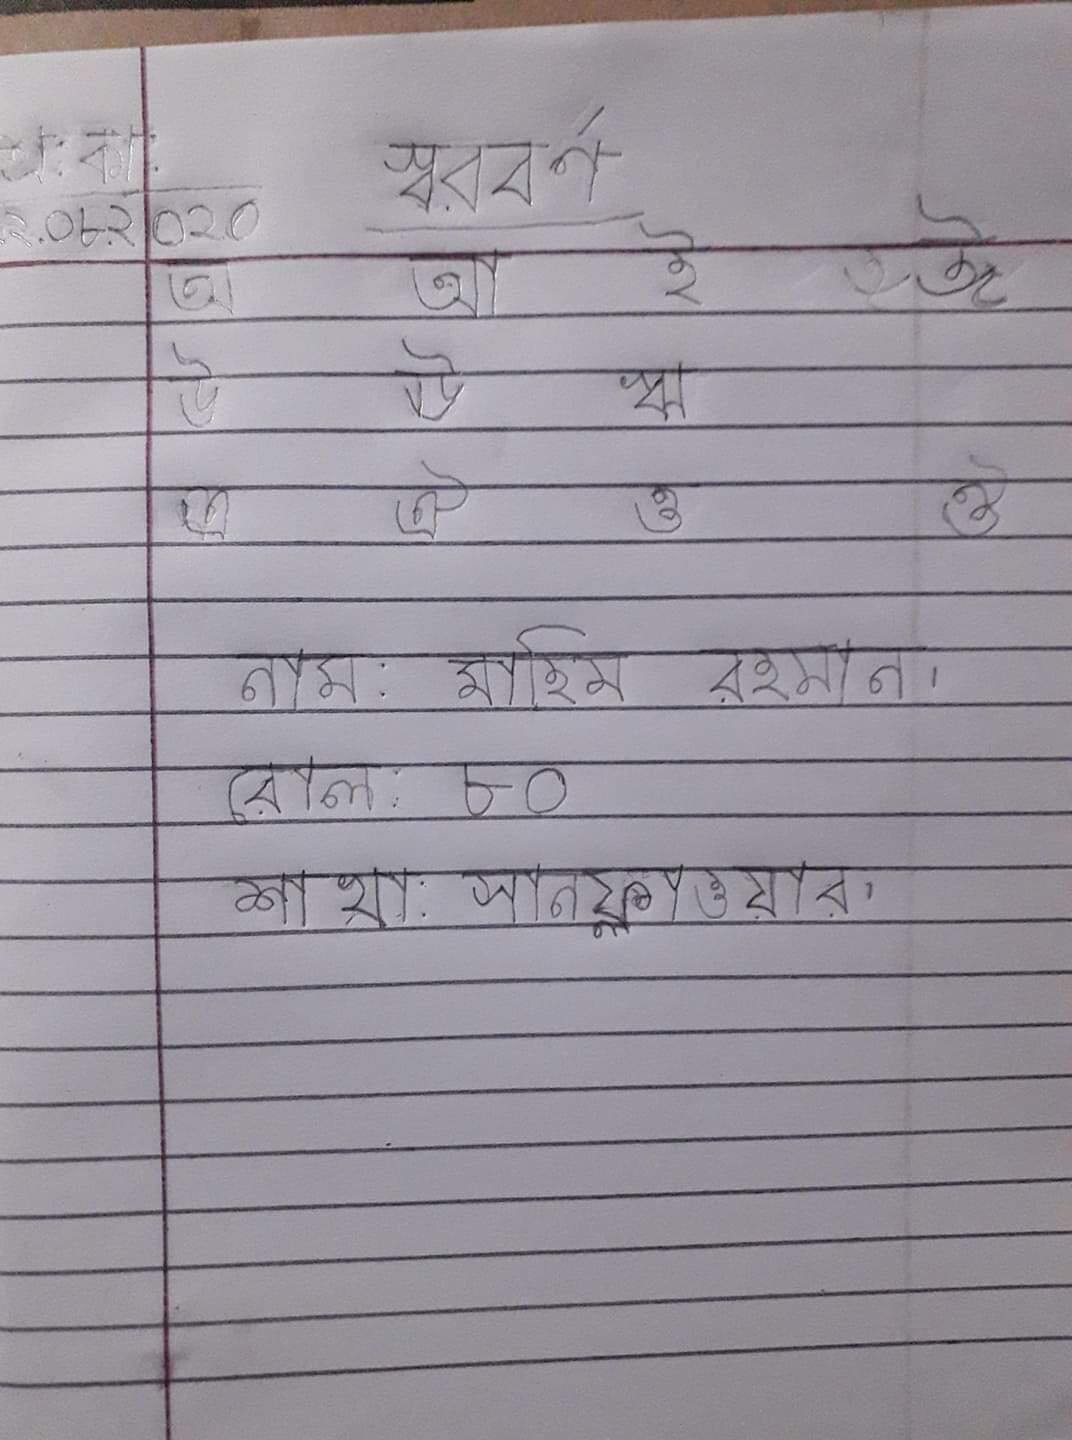 শ্রে: কা:
স্বরবর্ণ
অ আ ই ঈ
উ ঊ ঋ
এ ঐ ও ঔ
নাম: মাহিম রহমান।
রোল: ৮০
শাখা: সানফ্লাওয়ার।